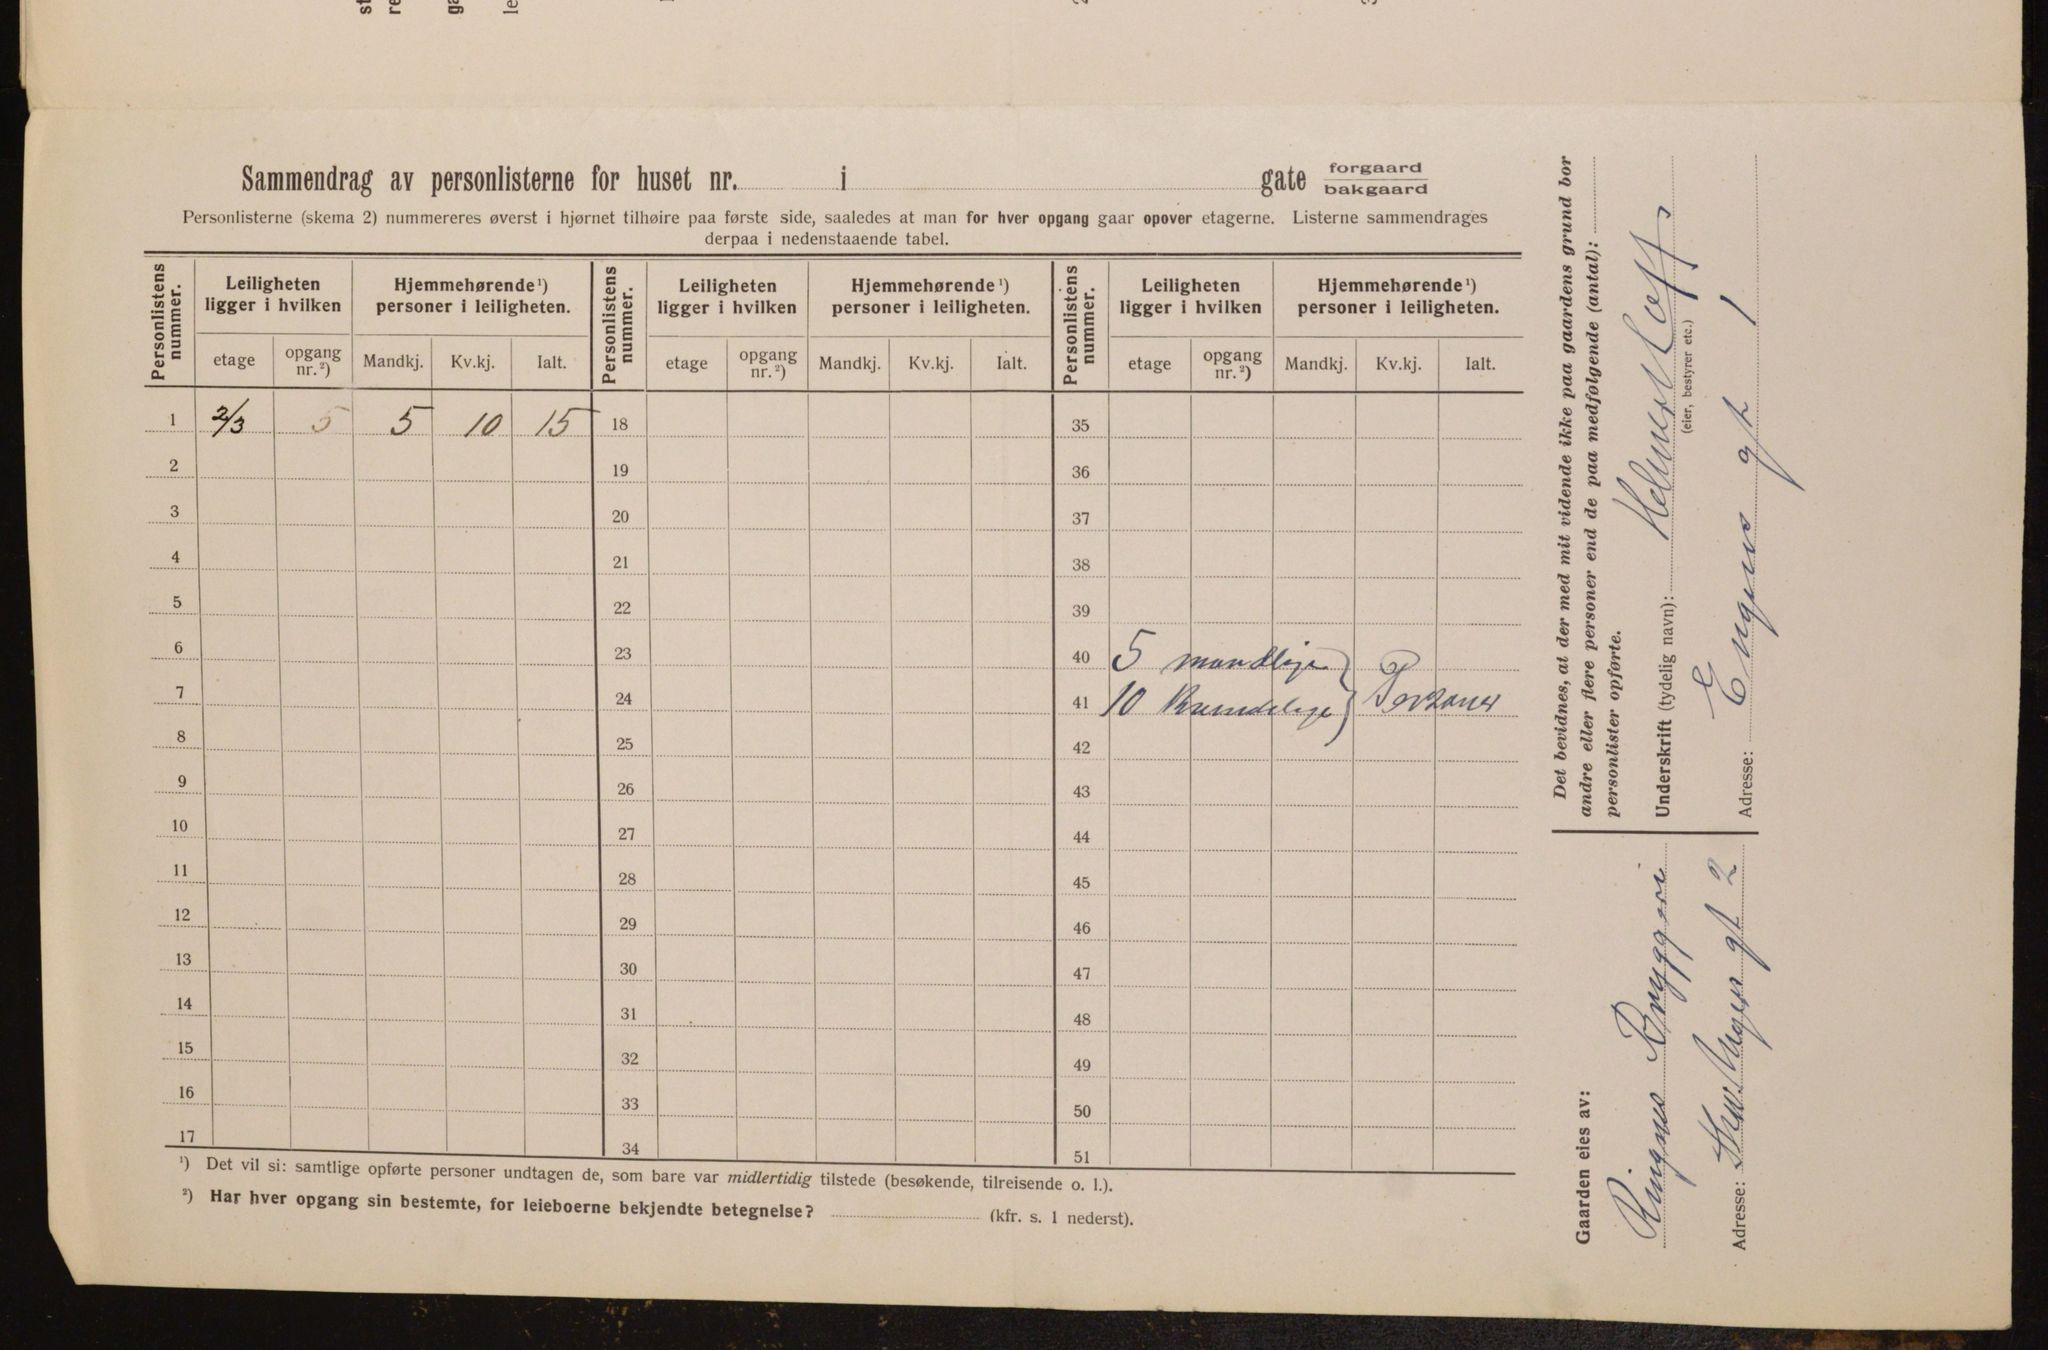 Sammendrag av personlisterne for huset nr. i gate forgaard
bakgaard
Personlisterne (skema 2) nummereres øverst i hjørnet tilhøire paa første side, saaledes at man for hver opgang gaar opover etagerne. Listerne sammendrages
derpaa i nedenstaaende tabel.
Personlistens nummer. Leiligheten ligger i hvilken Hjemmehørende ¹) personer i leiligheten. Personlistens nummer. Leiligheten ligger i hvilken Hjemmehørende ¹) personer i leiligheten. Personlistens nummer. Leiligheten ligger i hvilken Hjemmehørende ¹) personer i leiligheten.
etage opgang nr. ²) Mandkj. Kv.kj. Ialt. etage opgang nr. ²) Mandkj. Kv.kj. Ialt. etage opgang nr. ²) Mandkj. Kv.kj. Ialt.
1 2/3 5 5 10 15 18 35
2 19 36
3 20 37
4 21 38
5 22 39
6 23 40 5 mandlige
7 24 41 10 Kvindelige } Personer
8 25 42
9 26 43
10 27 44
11 28 45
12 29 46
13 30 47
14 31 48
15 32 49
16 33 50
17 34 51
¹) Det vil si: samtlige opførte personer undtagen de, som bare var midlertidig tilstede (besøkende, tilreisende o. l.).
²) Har hver opgang sin bestemte, for leieboerne bekjendte betegnelse? (kfr. s. 1 nederst).
Det bevidnes, at der med mit vidende ikke paa gaardens grund bor
andre eller flere personer end de paa medfølgende (antal):
personlister opførte.
Underskrift (tydelig navn):
(eier, bestyrer etc.)
Adresse: Engens gt 1
Gaarden eies av:
Ringnes Bryggeri
Adresse: Thv. Meyers gt 2